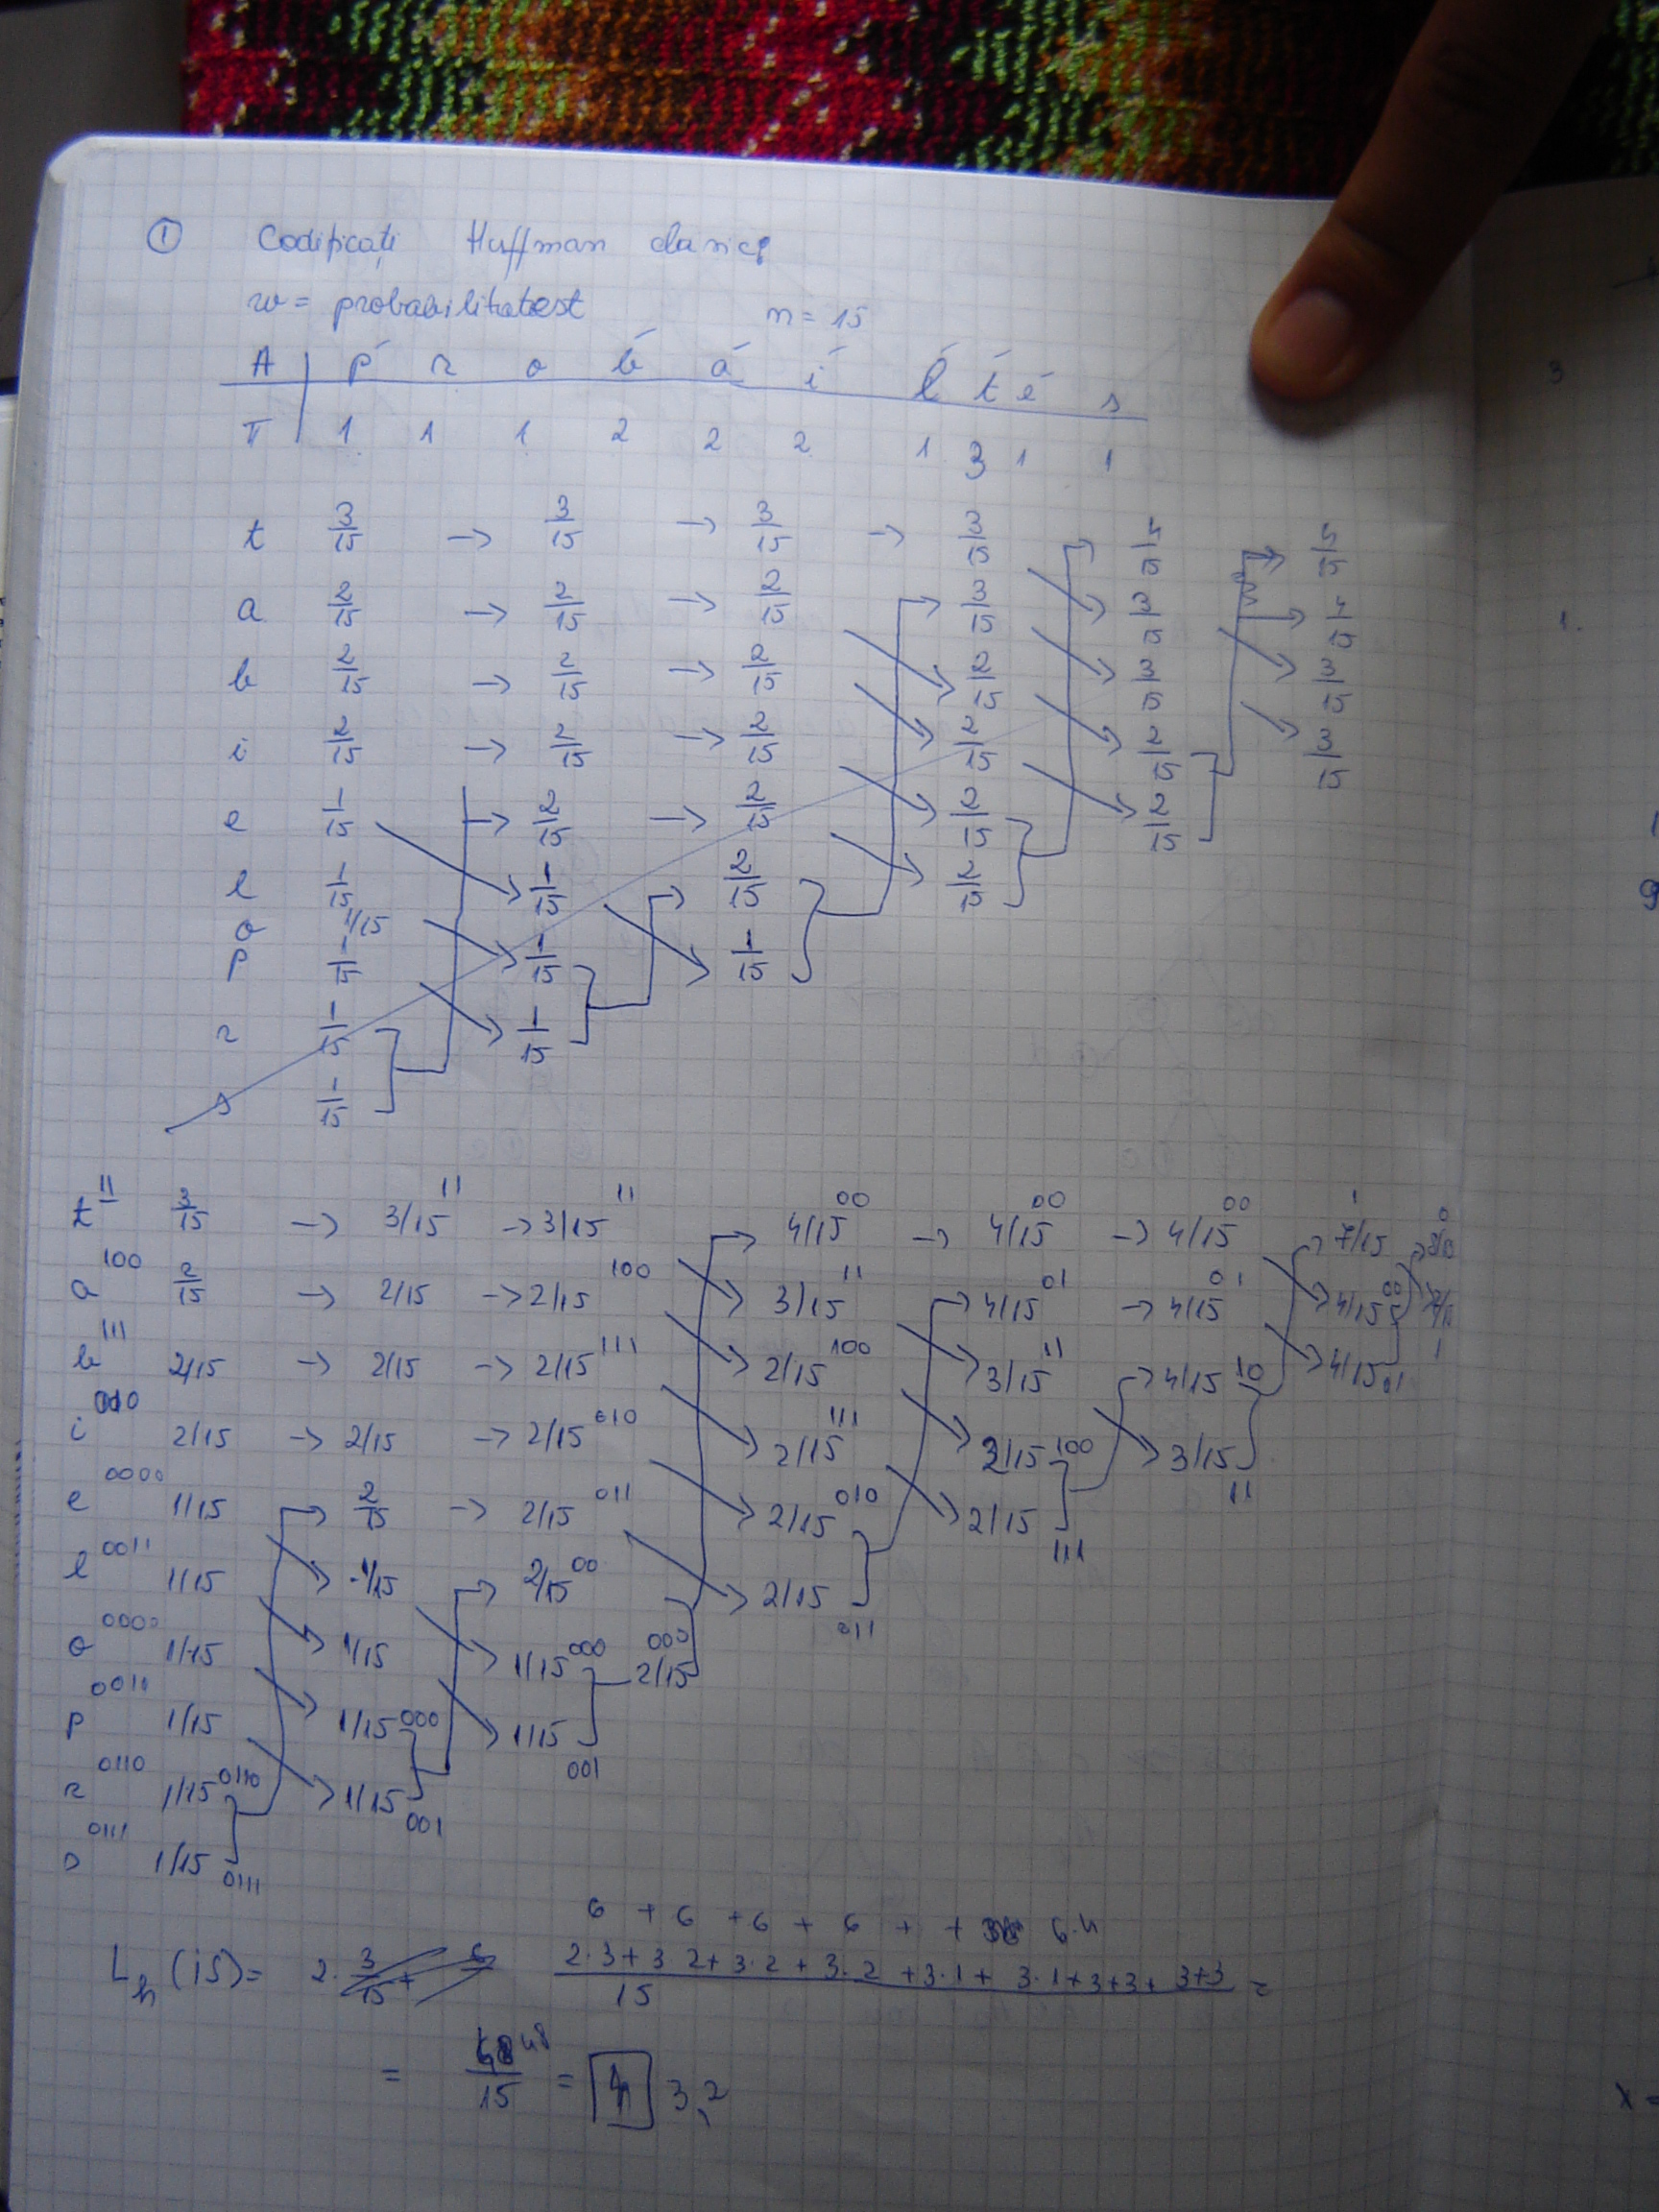 ① Codificați Huffman clasică
w = probabilitatest n = 15
A | p r o b a i l t e s
π | 1 1 1 2 2 2 1 3 1 1
t 3/15 → 3/15 → 3/15 → 3/15 5/15
a 2/15 → 2/15 → 2/15 3/15 3/15 4/15
b 2/15 → 2/15 → 2/15 2/15 3/15 3/15
i 2/15 → 2/15 → 2/15 2/15 2/15 3/15
e 1/15 → 2/15 → 2/15 2/15 2/15
l 1/15 1/15 2/15 2/15
o 1/15
p 1/15 1/15 1/15
r 1/15 1/15
s 1/15
t 11 3/15 → 3/15 11 → 3/15 11 → 4/15 00 → 4/15 00 → 4/15 00 → 7/15 1
a 100 2/15 → 2/15 → 2/15 100 3/15 11 → 4/15 01 → 4/15 01 → 4/15 00
b 111 2/15 → 2/15 → 2/15 111 2/15 100 3/15 11 → 4/15 10 → 4/15 01
i 010 2/15 → 2/15 → 2/15 010 2/15 111 2/15 100 3/15 11
e 0000 1/15 → 2/15 → 2/15 011 2/15 010 2/15 111
l 0011 1/15 1/15 → 2/15 00 2/15 011
o 0000 1/15 1/15 1/15 000 2/15 000
p 0011 1/15 1/15 000 1/15 001
r 0110 1/15 0110 1/15 001
s 0111 1/15 0111
6 + 6 + 6 + 6 + + 6·4
L_h (15) = 2·3/15 + 2·3 + 3 2 + 3·2 + 3·2 + 3·1 + 3·1 + 3 + 3 + 3 + 3 / 15 =
= 48/15 = 3,2